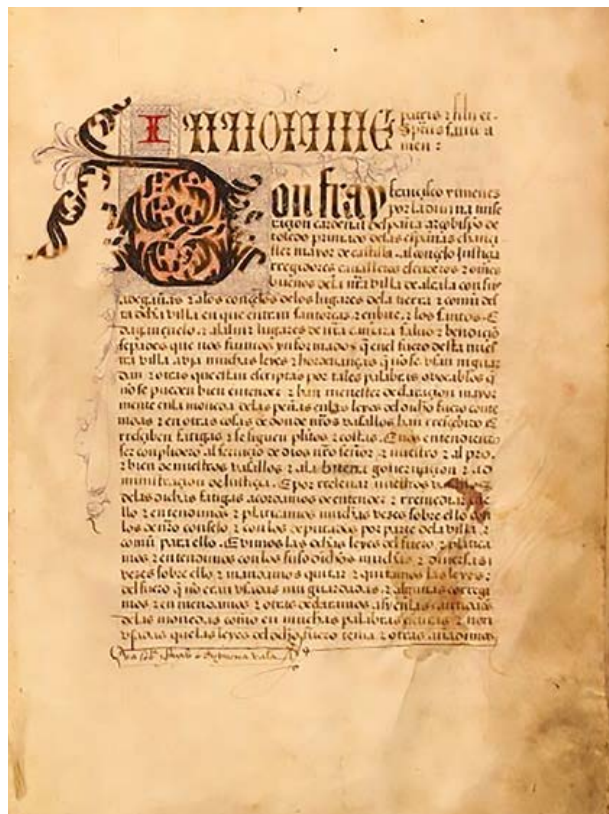 IN NOMINE patris z filii et
Spūs santi a
men :
Don fray francisco ximenes
por la diuina mise
racion cardenal despaña arçobispo de
toledo primado delas españas chanci
ller mayor de castilla . al conçejo Justiçia
rregidores caualleros escuderos z omes
buenos dela nr̄a villa de alcala con sus
adegañas z alos conçejos delos lugares dela tierra z comū del
ta dicha villa en que entran santorcas z . z los santos . E
daganzuelo . z al alui lugares de nr̄a camara salud z bendiciō
sepades que nos fuimos ynformados q̄ enel fuero desta nues
tra villa avia muchas leyes z hordenanças q̄ no se vsan ni guar
dan z otras que estan escriptas por tales palabras z vocablos q̄
no se pueden bien entender z han menester declaraçion mayor
mente enla moneda delas penas enlas leyes del dicho fuero conte
nidas z en otras cosas de donde nr̄os vasallos han rresçebido E
rresçiben fatigas z se siguen pleitos z costas . E nos entendiendo
ser conplidero al seruiçio de dios nr̄o señor z nuestro z al pro .
z bien de nuestros vasallos z ala buena gouernaçion z ad
ministraçion de Justiçia . E por rreleuar nuestros vasallos
delas dichas fatigas acordamos de entender z rremediar
llo z entendimos z platicamos muchas vezes sobre ello con
los de nr̄o consejo z con los deputados por parte dela villa z
comū para ello . E vimos las dichas leyes del fuero z platica
mos z entendimos con los suso dichos muchas z diuersas
vezes sobre ello z mandamos quitar z quitamos las leyes
del fuero q̄ no eran vsadas nin guardadas z algunas corregi
mos z enmendamos z otras declaramos asy enlas cantidades
delas monedas como en muchas palabras escuras z non
vsadas quelas leyes del dicho fuero tenia z otras añadimos